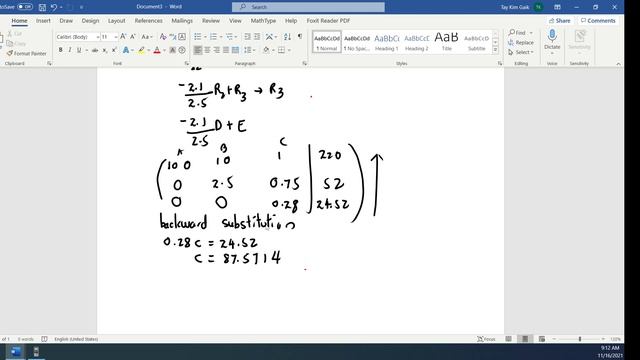 AutoSave Off Document3 - Word Search Tay Kim Gaik TK
File Home Insert Draw Design Layout References Mailings Review View Help MathType Help Foxit Reader PDF Share Comments
Cut Copy Format Painter
11 A A Aa
B I U ab x₂ x² A
AaBbCcDd AaBbCcDd AaBbCc AaBbCcC AaB AaBbCcD
1 Normal 1 No Spac... Heading 1 Heading 2 Title Subtitle
Find Replace Select Dictate Sensitivity Editor
Clipboard Font Paragraph Styles Editing Voice Sensitivity Editor
-2.1/2.5 R₂+R₃ → R₃
-2.1/2.5 D + E
A B C
100 10 1 | 220
0 2.5 0.75 52
0 0 0.28 24.52
backward substitution
0.28 C = 24.52
C = 87.5714
Page 1 of 1 0 words English (United States) Focus 120%
9:12 AM
11/16/2021